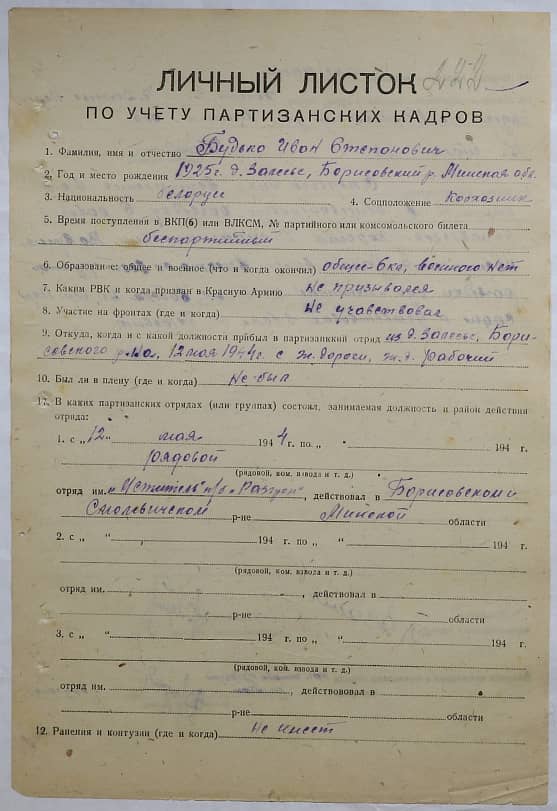 222
ЛИЧНЫЙ ЛИСТОК
ПО УЧЕТУ ПАРТИЗАНСКИХ КАДРОВ
1. Фамилия, имя и отчество Будько Иван Степанович
2. Год и место рождения 1925г. д. Залесье, Борисовский р. Минская обл.
3. Национальность белорус 4. Соцположение Колхозник
5. Время поступления в ВКП(б) или ВЛКСМ, № партийного или комсомольского билета
беспартийный
6. Образование: общее и военное (что и когда окончил) общее-6кл, военного нет
7. Каким РВК и когда призван в Красную Армию Не призывался
8. Участие на фронтах (где и когда) Не учавствовал
9. Откуда, когда и с какой должности прибыл в партизанкий отряд из д. Залесье, Бори-
совского р-на, 12 мая 1944г. с ж. дороги, ж.д. рабочий
10. Был ли в плену (где и когда) Не был
17. В каких партизанских отрядах (или группах) состоял, занимаемая должность и район действия
отряда:
1. с „12" мая 1944 г. по „ " 194 г.
рядовой
(рядовой, ком. взвода и т. д.)
отряд им. „Мститель" п/б „Разгром", действовал в Борисовском и
Смолевичском р-не Минской области
2. с „ " 194 г. по „ " 194 г.
(рядовой, ком. взвода и т. д.)
отряд им. , действовал в
р-не области
3. с „ " 194 г. по „ " 194 г.
(рядовой, ком. взвода и т. д.)
отряд им. , действововал в
р-не области
12. Ранения и контузии (где и когда) Не имеет